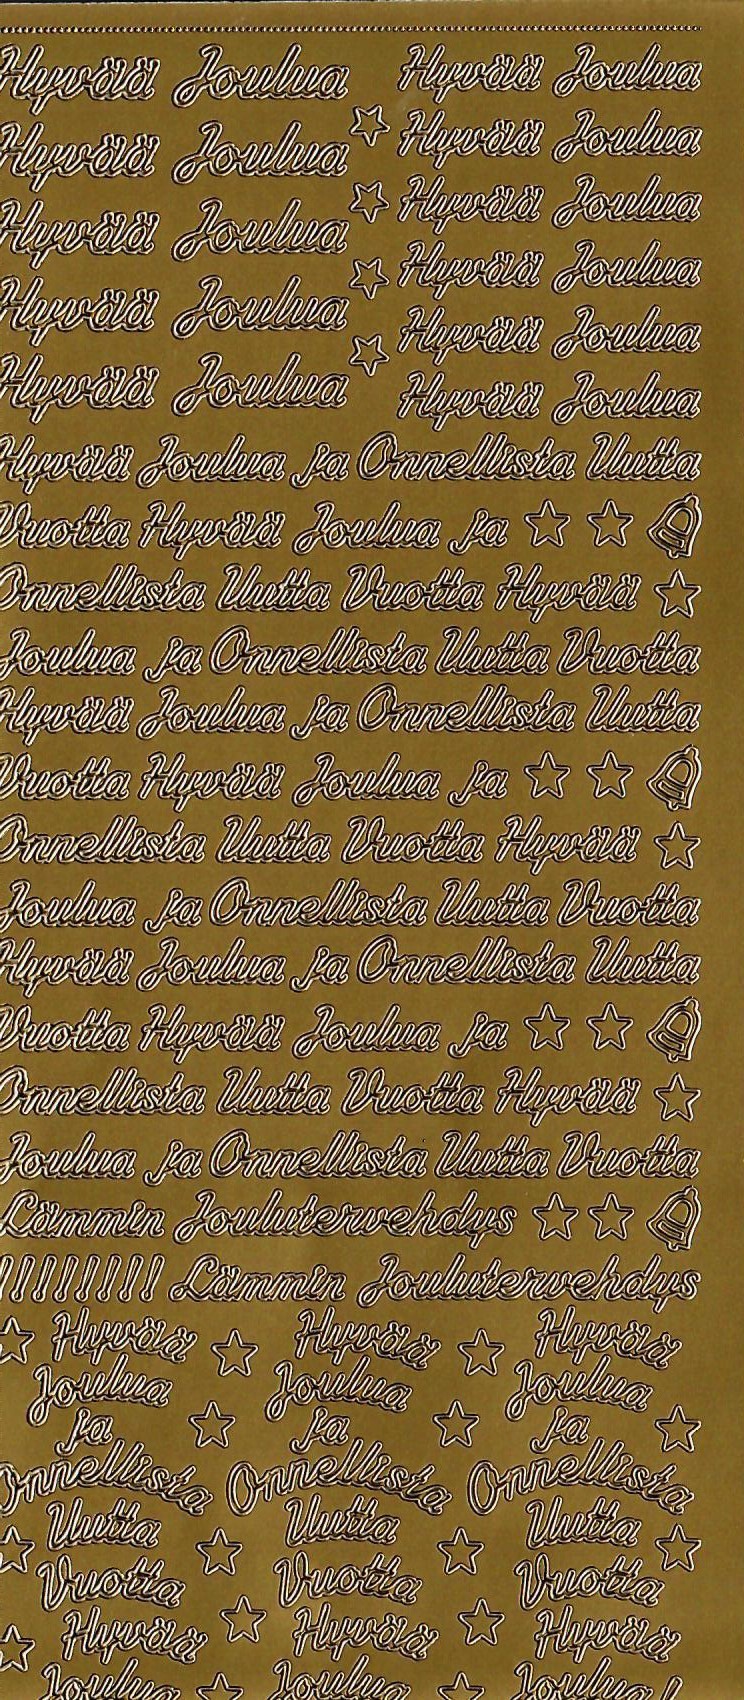 Hyvää Joulua
Hyvää Joulua
Hyvää Joulua
Hyvää Joulua
Hyvää Joulua
Hyvää Joulua
Hyvää Joulua
Hyvää Joulua
Hyvää Joulua
Hyvää Joulua
Hyvää Joulua
Hyvää Joulua ja Onnellista Uutta
Vuotta Hyvää Joulua ja
Onnellista Uutta Vuotta Hyvää
Joulua ja Onnellista Uutta Vuotta
Hyvää Joulua ja Onnellista Uutta
Vuotta Hyvää Joulua ja
Onnellista Uutta Vuotta Hyvää
Joulua ja Onnellista Uutta Vuotta
Hyvää Joulua ja Onnellista Uutta
Vuotta Hyvää Joulua ja
Onnellista Uutta Vuotta Hyvää
Joulua ja Onnellista Uutta Vuotta
Lämmin Joulutervehdys
!!!!!!!!! Lämmin Joulutervehdys
Hyvää
Joulua
ja
Onnellista
Uutta
Vuotta
Hyvää
Joulua
Hyvää
Joulua
ja
Onnellista
Uutta
Vuotta
Hyvää
Joulua
Hyvää
Joulua
ja
Onnellista
Uutta
Vuotta
Hyvää
Joulua